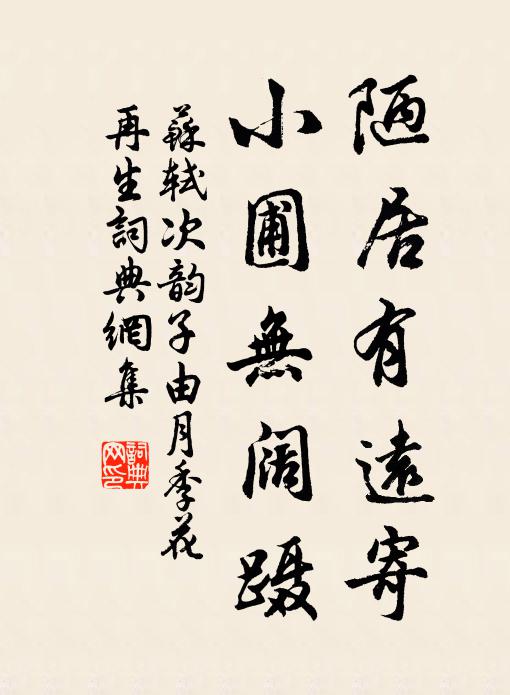 陋居有遠寄
小圃無阔蹑
蘇轼次韵子由月季花
再生詞典網集
詞典网印